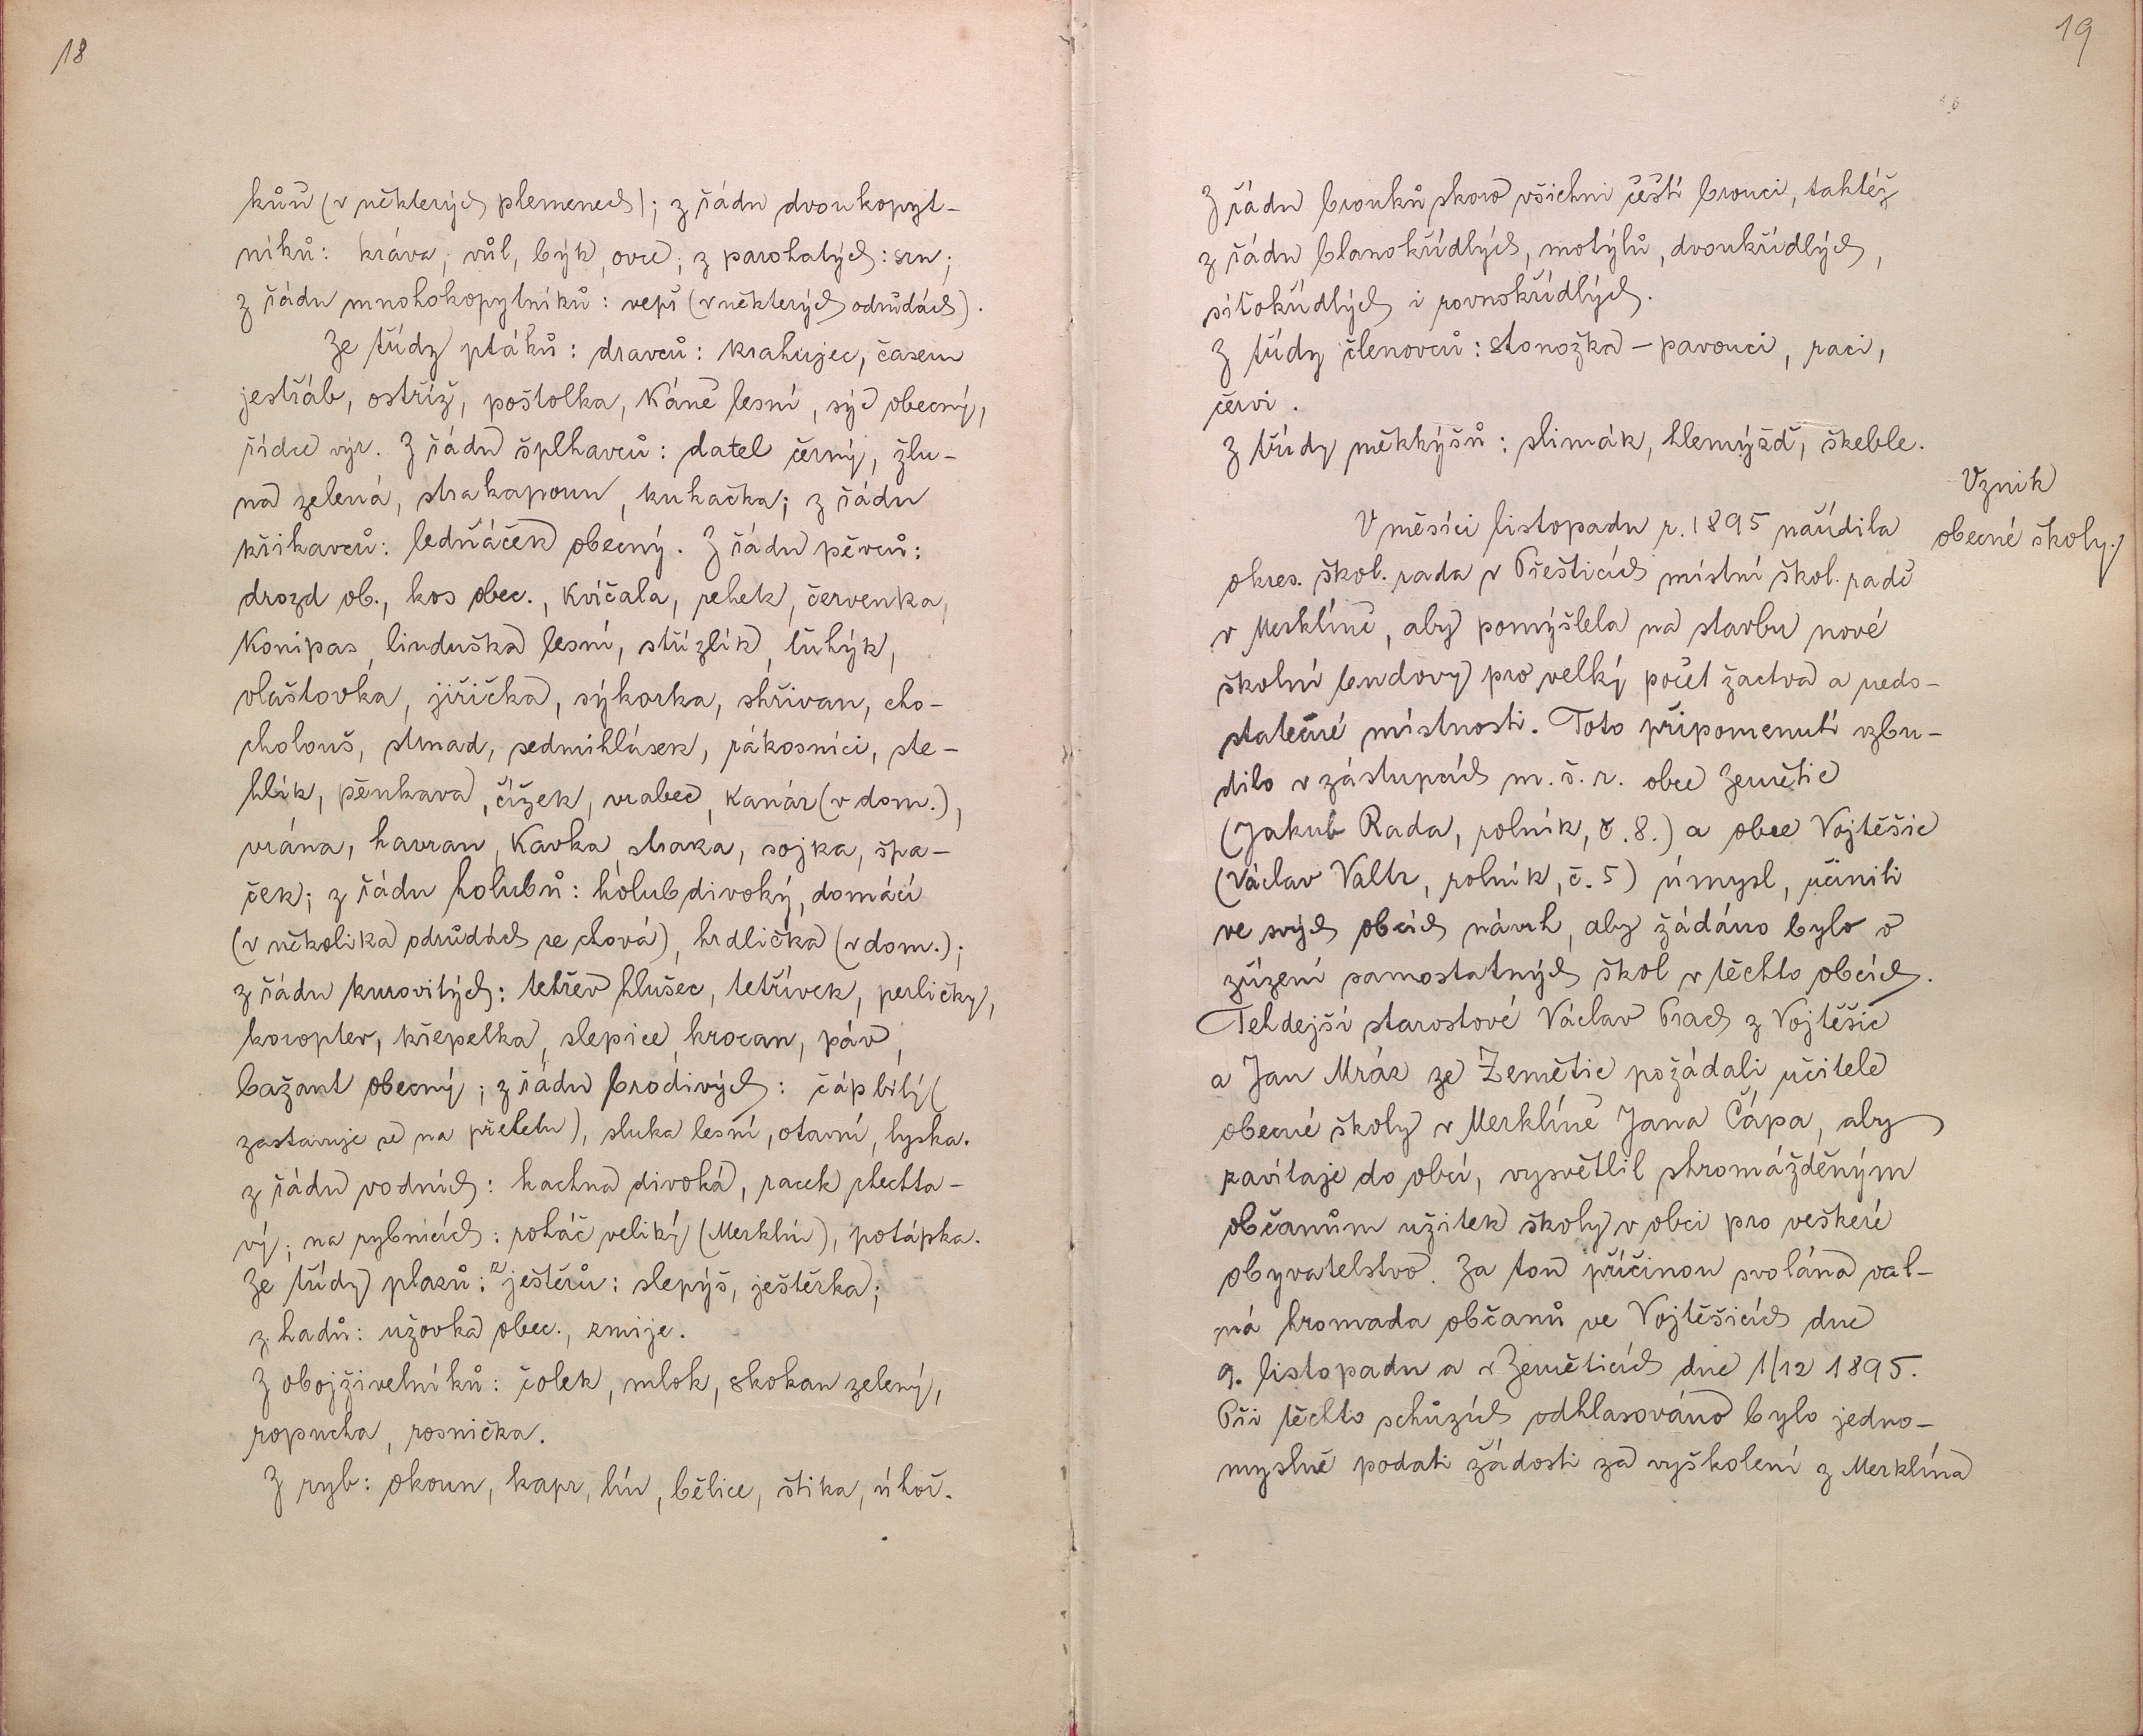 18
kůň (v některých plemenech); z řádu dvoukopyt-
níků: kráva, vůl, býk, ovce; z parohatých: srn;
z řádu mnohokopytníků: vepř (v některých odrůdách).
Ze třídy ptáků: dravců: krahujec, časem
jestřáb, ostříž, poštolka, káně lesní, sýc obecný,
řídce výr. Z řádu šplhavců: datel černý, žlu-
na zelená, strakapoun, kukačka; z řádu
křikavců: ledňáček obecný. Z řádu pěvců:
drozd ob., kos obec., kvíčala, rehek, červenka,
konipas, linduška lesní, střízlík, ťuhýk,
vlaštovka, jiřička, sýkorka, skřivan, cho-
cholouš, strnad, sedmihlásek, rákosníci, ste-
hlík, pěnkava, čížek, vrabec, kanár (v dom.),
vrána, havran, kavka, straka, sojka, špa-
ček; z řádu holubů: holub divoký, domácí
(v několika odrůdách se chová), hrdlička (v dom.);
z řádu kurovitých: tetřev hlušec, tetřívek, perličky,
koroptev, křepelka, slepice, krocan, páv,
bažant obecný; z řádu brodivých: čáp bílý (
zastavuje se na přeletu), sluka lesní, otavní, lyska.
z řádu vodních: kachna divoká, racek chechta-
vý; na rybnících: roháč veliký (Merklín), potápka.
Ze třídy plazů: z ještěrů: slepýš, ještěrka;
z hadů: užovka obec., zmije.
Z obojživelníků: čolek, mlok, skokan zelený,
ropucha, rosnička.
Z ryb: okoun, kapr, lín, bělice, štika, úhoř.
19
Z řádu brouků skoro všichni čeští brouci, taktéž
z řádu blanokřídlých, motýlů, dvoukřídlých,
síťokřídlých i rovnokřídlých.
Z třídy členovců: stonožka - pavouci, raci,
červi.
Z třídy měkkýšů: slimák, hlemýžď, škeble.
Vznik
obecné školy.
V měsíci listopadu r. 1895 nařídila
okres. škol. rada v Přešticích místní škol. radě
v Merklíně, aby pomýšlela na stavbu nové
školní budovy pro velký počet žactva a nedo-
statečné místnosti. Toto připomenutí vzbu-
dilo v zástupcích m. š. r. obce Zemětic
(Jakub Rada, rolník, č. 8.) a obce Vojtěšic
(Václav Valtr, rolník, č. 5) úmysl, učiniti
ve svých obcích návrh, aby žádáno bylo o
zřízení samostatných škol v těchto obcích.
Tehdejší starostové Václav Prach z Vojtěšic
a Jan Mráz ze Zemětic požádali učitele
obecné školy v Merklíně Jana Čápa, aby
zavítaje do obcí, vysvětlil shromážděným
občanům užitek školy v obci pro veškeré
obyvatelstvo. Za tou příčinou svolána val-
ná hromada občanů ve Vojtěšicích dne
9. listopadu a v Zeměticích dne 1/12 1895.
Při těchto schůzích odhlasováno bylo jedno-
myslně podati žádosti za vyškolení z Merklína